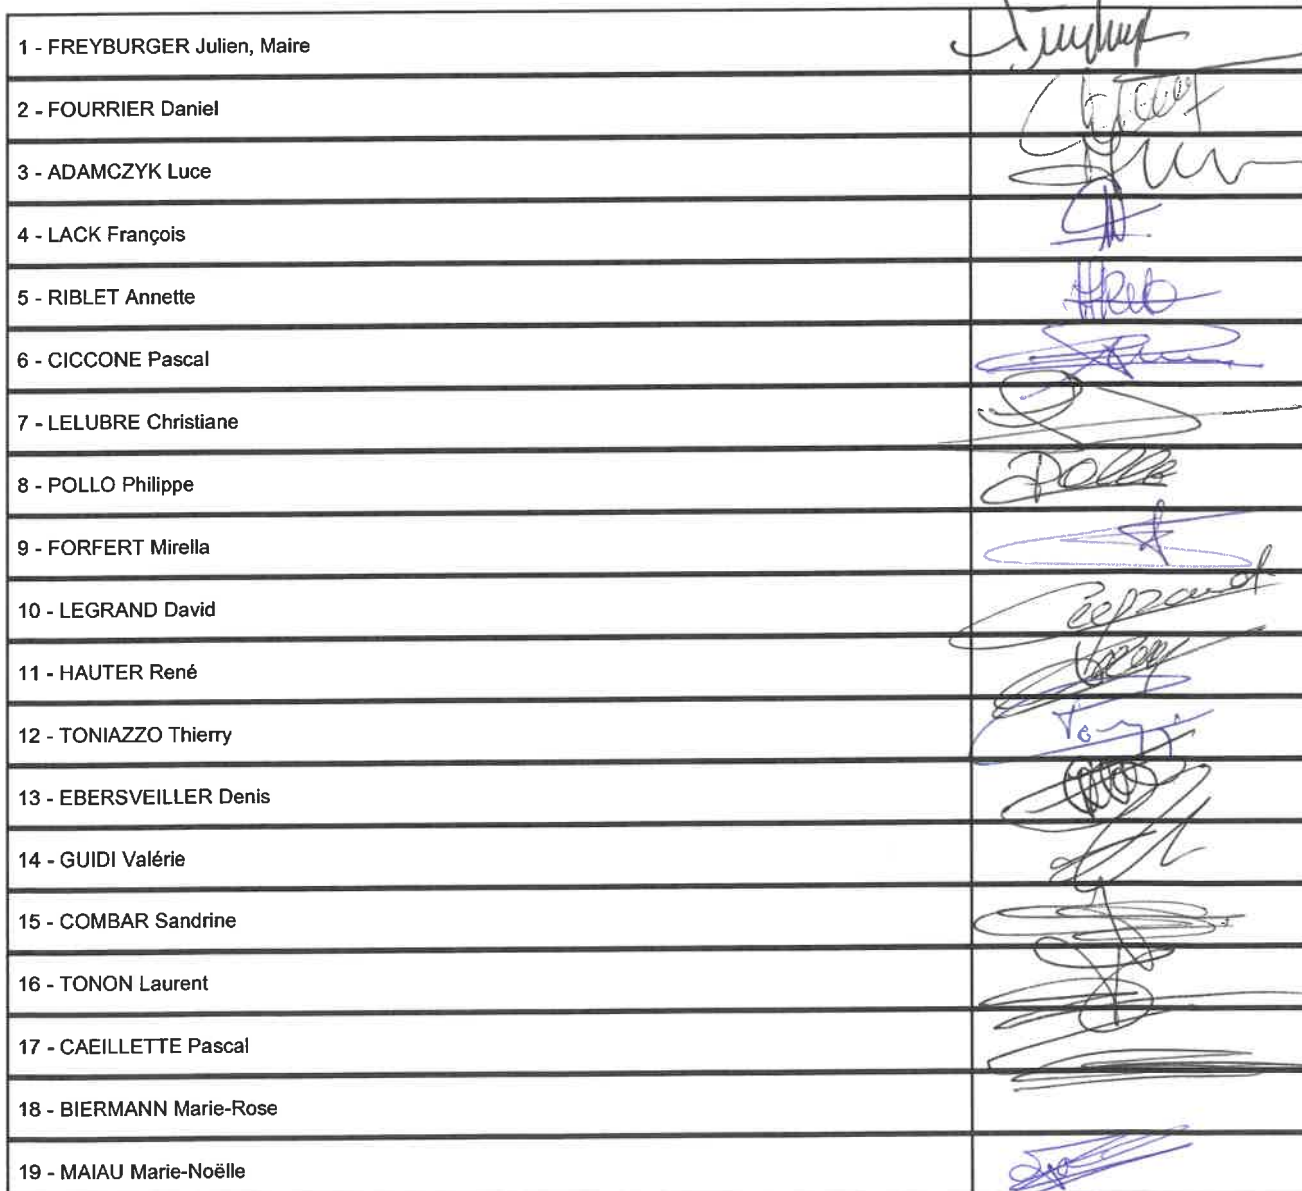 1 - FREYBURGER Julien, Maire
2 - FOURRIER Daniel
3 - ADAMCZYK Luce
4 - LACK François
5 - RIBLET Annette
6 - CICCONE Pascal
7 - LELUBRE Christiane
8 - POLLO Philippe
9 - FORFERT Mirella
10 - LEGRAND David
11 - HAUTER René
12 - TONIAZZO Thierry
13 - EBERSVEILLER Denis
14 - GUIDI Valérie
15 - COMBAR Sandrine
16 - TONON Laurent
17 - CAEILLETTE Pascal
18 - BIERMANN Marie-Rose
19 - MAIAU Marie-Noëlle